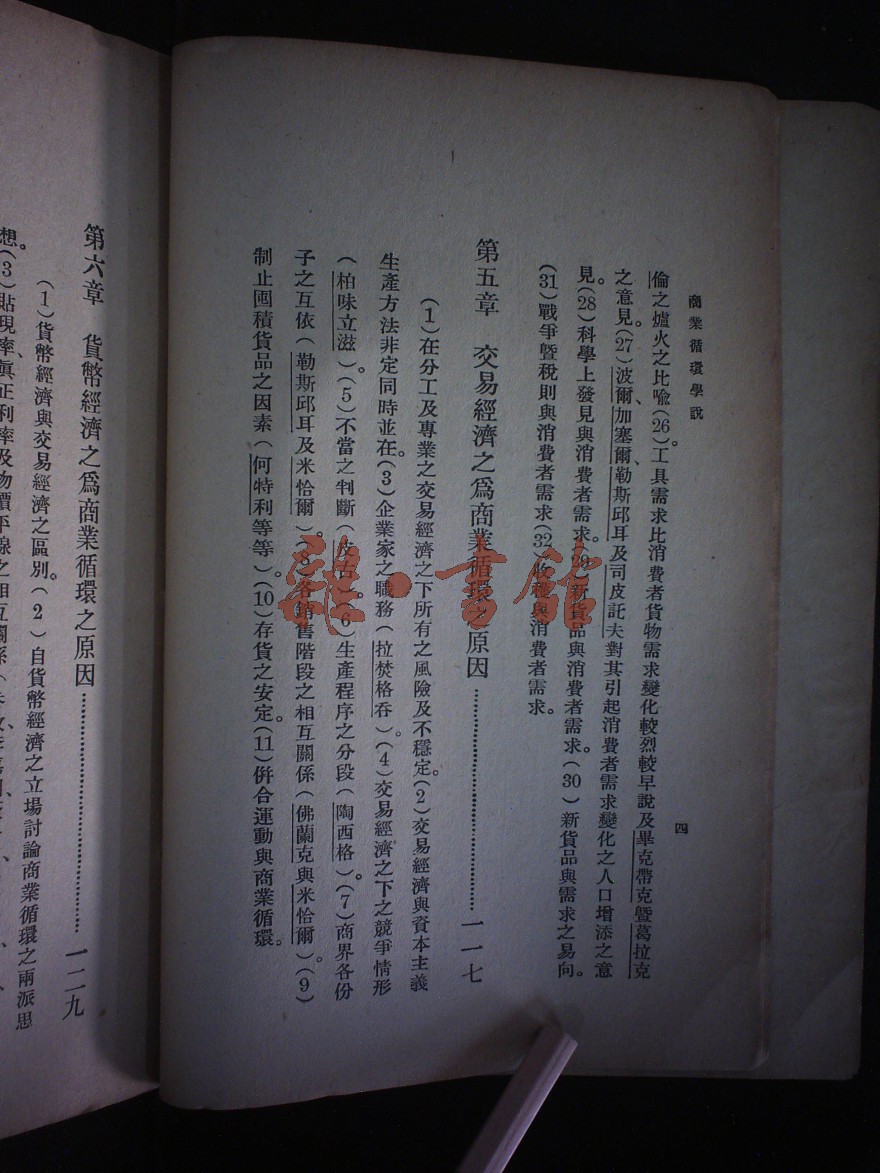 商業循環學說
四
倫之爐火之比喩。(26)工具需求比消費者貨物需求變化較烈較早說及畢克帶克暨葛拉克
之意見。(27)波爾、加塞爾、勒斯邱耳及司皮託夫對其引起消費者需求變化之人口增添之意
見。(28)科學上發見與消費者需求。(29)新貨品與消費者需求。(30)新貨品與需求之易向。
(31)戰爭暨稅則與消費者需求(32)收穫與消費者需求。
第五章 交易經濟之爲商業循環之原因…………一一七
(1)在分工及專業之交易經濟之下所有之風險及不穩定。(2)交易經濟與資本主義
生產方法非定同時並在。(3)企業家之職務(拉焚格吞)。(4)交易經濟之下之競爭情形
(柏味立滋)。(5)不當之判斷(皮古)。(6)生產程序之分段(陶西格)。(7)商界各份
子之互依(勒斯邱耳及米恰爾)。(8)各銷售階段之相互關係(佛蘭克與米恰爾)。(9)
制止囤積貨品之因素(何特利等等)。(10)存貨之安定。(11)倂合運動與商業循環。
第六章 貨幣經濟之爲商業循環之原因…………一二九
(1)貨幣經濟與交易經濟之區別。(2)自貨幣經濟之立場討論商業循環之兩派思
想。(3)貼現率、眞正利率及物價平線之相互關係
梁·書館